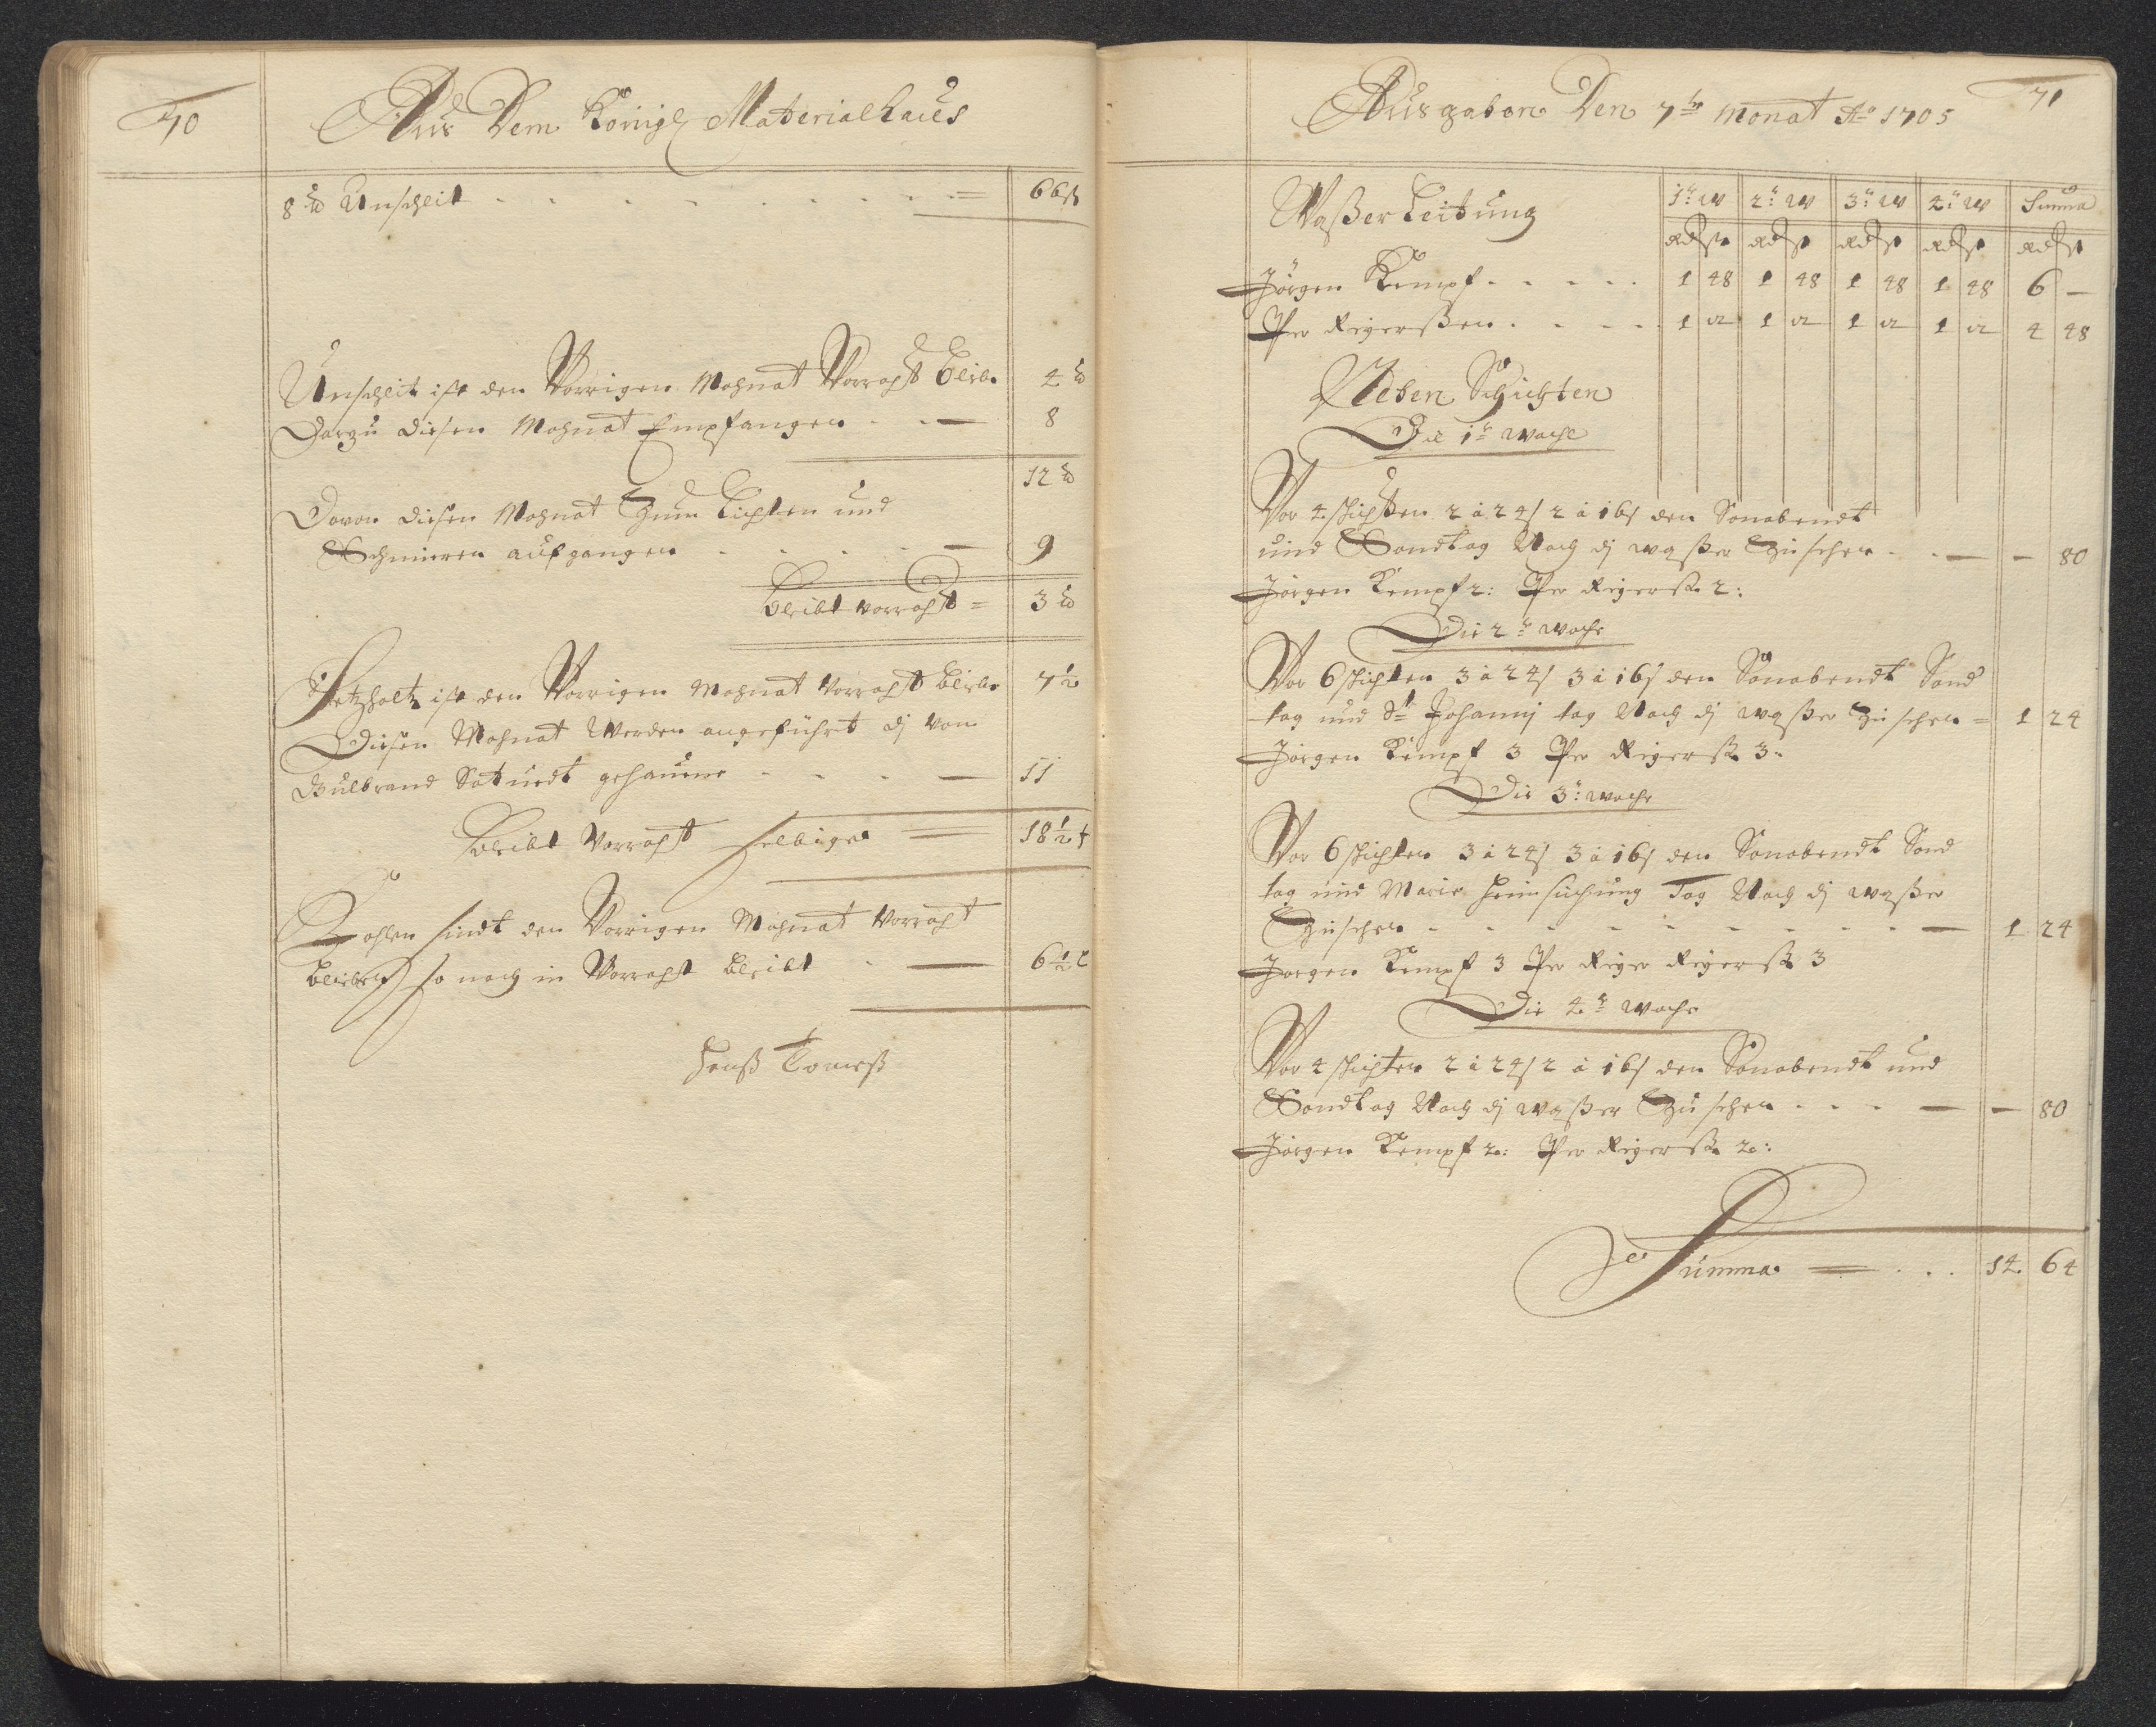 70
Aus Dem Königl Materialhaus
8 ℔ Unscheit - - - - - - - - = 66ß
Unscheit ist den Vorrigen Mohnat Vorraht bleibn 4 ℔
Darzu diesen Mohnat Empfangen - - — 8
12 ℔
Davon diesen Mohnat Zum Lichten und
Schmieren aufgangen - - - - — 9
bleibt vorraht = 3 ℔
Setzholtz ist den Vorrigen Mohnat vorraht bleibn 7½
Diesen Mohnat Werden angeführt dj von
Gulbrand gehauene - - - — 11
bleibt Vorraht selbiges = 18½ t
Kohlen sindt den Vorrigen Mohnat vorraht
bleiben so noch in Vorraht bleibt - — 6½ l
Hanß Tomeß
71
Ausgaben Den 7tn Monat Ao 1705
Waßer Leitung
1:ë W 2:ë W 3:ë W 4:ë W Summa
Rd ß Rd ß Rd ß Rd ß Rd ß
Jörgen Kempf - - - - - 1 48 1 48 1 48 1 48 6 —
Per Reyerßen - - - - 1 12 1 12 1 12 1 12 4 48
Neben Schichten
Die 1ë Woche
Vor 4 schichten 2 à 24ß 2 à 16ß den Sonabendt
und Sondtag Nach dj waßer Zu sehen - - — — 80
Jörgen Kempf 2: Per Reyerß 2:
Die 2ë woche
Vor 6 schichten 3 à 24ß 3 à 16ß den Sonabendt Sond
tag und St Johannj tag Nach dj waßer Zu sehen = 1 24
Jörgen Kempf 3 Per Reyerß 3:
Die 3ë woche
Vor 6 schichten 3 à 24ß 3 à 16ß den Sonabendt Sond
tag und Marie Heimsuchung Tag Nach dj waßer
Zu sehen - - - - - - - - — 1 24
Jörgen Kempf 3 Per Reyer Reyerß 3
Die 4ë woche
Vor 4 schichten 2 à 24ß 2 à 16ß den Sonabendt und
Sondtag Nach dj waßer Zu sehen - - - — — 80
Jörgen Kempf 2: Per Reyerß 2:
Summa = - - - 14 64